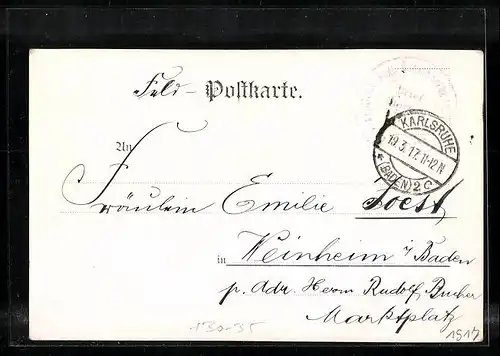 Feld- Postkarte.
KARLSRUHE
19.3.17.11-12N
* (BADEN) 2 c
An
Fräulein Emilie Joest
in Weinheim i/Baden
p. Adr. Herrn Rudolf Bucher
Marktplatz
130-35
1917